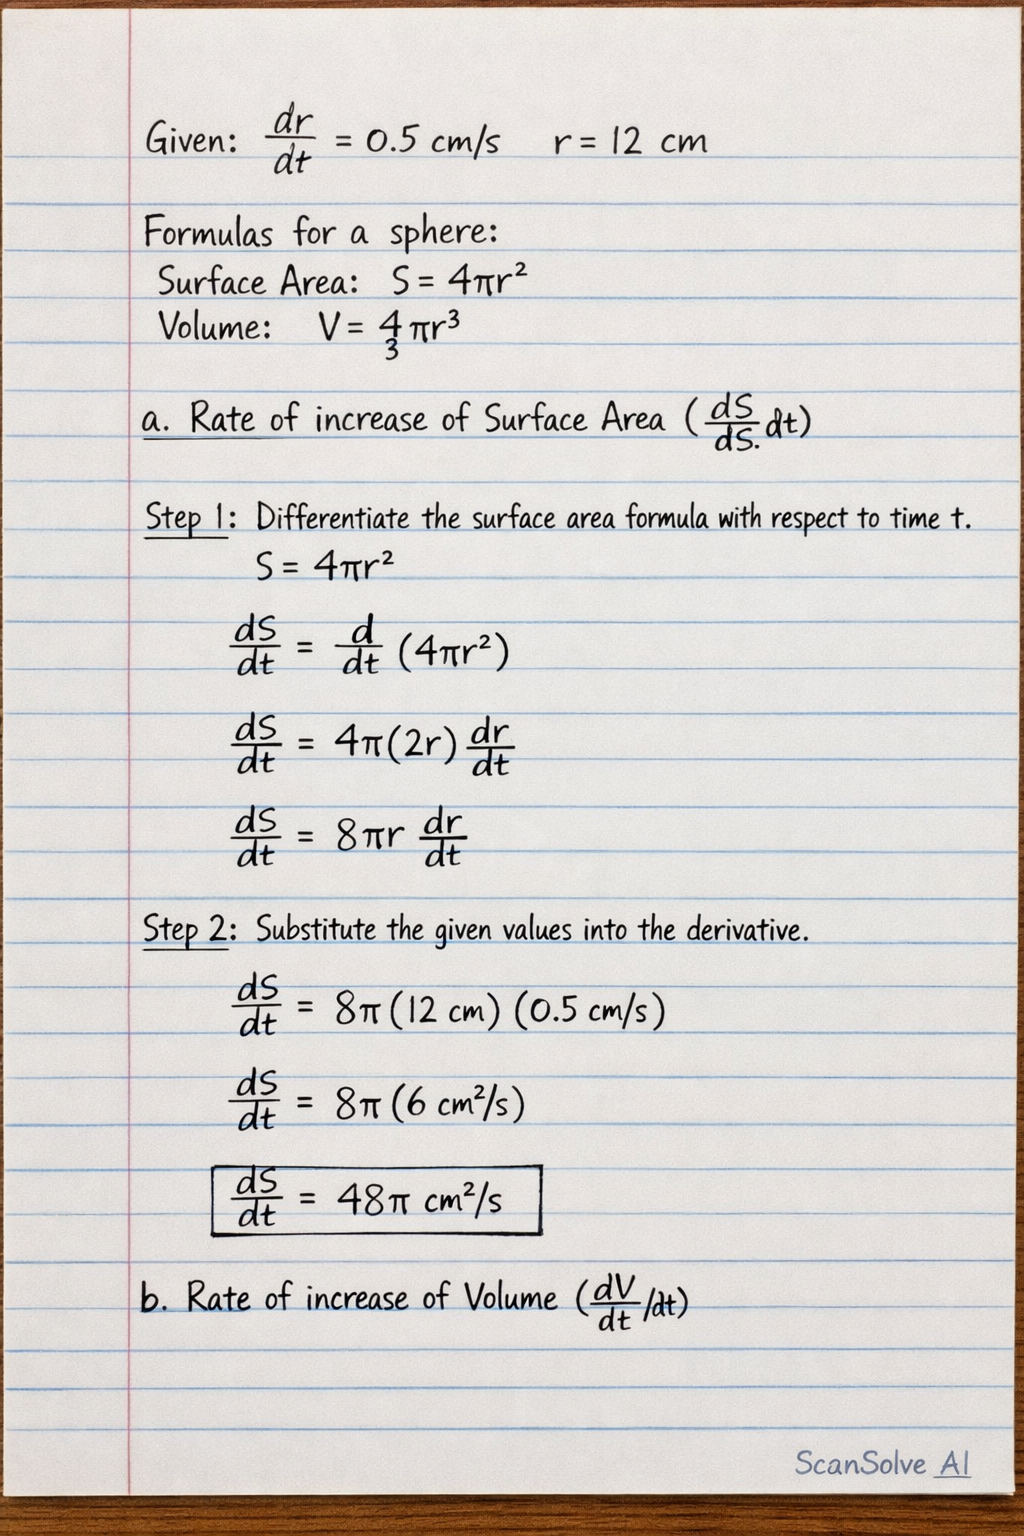 Given: dr/dt = 0.5 cm/s r = 12 cm
Formulas for a sphere:
Surface Area: S = 4πr²
Volume: V = 4/3 πr³
a. Rate of increase of Surface Area (dS/dS. dt)
Step 1: Differentiate the surface area formula with respect to time t.
S = 4πr²
dS/dt = d/dt (4πr²)
dS/dt = 4π(2r) dr/dt
dS/dt = 8πr dr/dt
Step 2: Substitute the given values into the derivative.
dS/dt = 8π (12 cm) (0.5 cm/s)
dS/dt = 8π (6 cm²/s)
dS/dt = 48π cm²/s
b. Rate of increase of Volume (dV/dt /dt)
ScanSolve AI